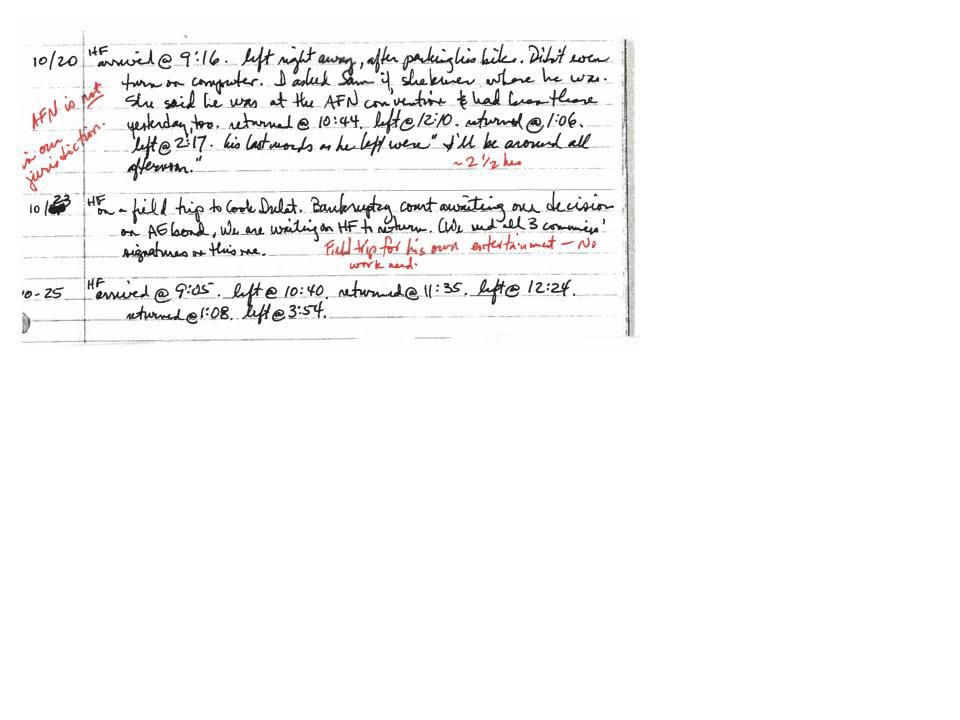 10/20 HF arrived @ 9:16. left right away, after parking his bike. Didn't even
turn on computer. I asked Sam if she knew where he was.
She said he was at the AFN convention & had been there
yesterday, too. returned @ 10:44. left @ 12:10. returned @ 1:06.
left @ 2:17. his last words as he left were "I'll be around all
afternoon."
~ 2 1/2 hrs
AFN is not
in our
jurisdiction.
10/23 HF on a field trip to Cook Inlet. Bankruptcy court awaiting our decision
on AE bond, We are waiting on HF to return. (We need all 3 commrs'
signatures on this one.
Field trip for his own entertainment – No
work need.
10-25 HF arrived @ 9:05. left @ 10:40. returned @ 11:35. left @ 12:24.
returned @ 1:08. left @ 3:54.